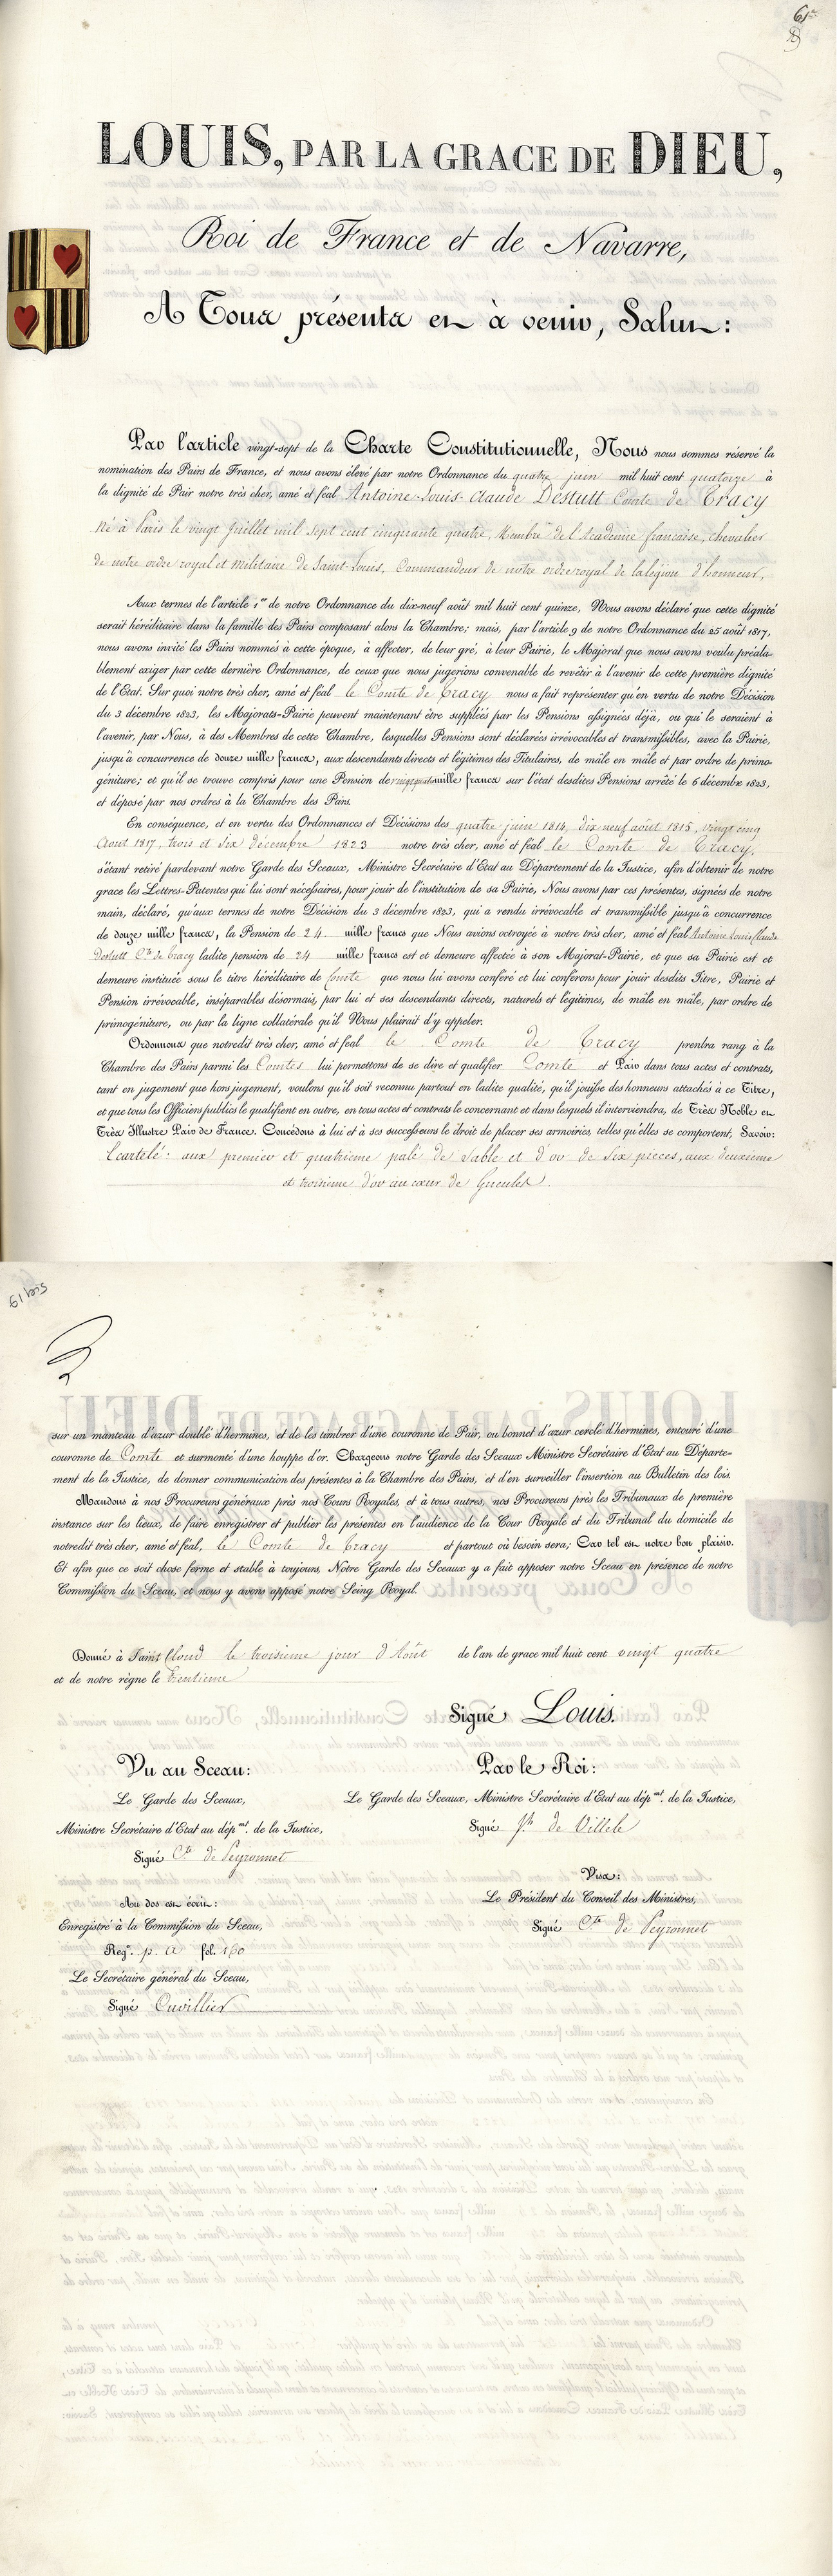 61
LOUIS, PAR LA GRACE DE DIEU,
Roi de France et de Navarre,
A Tous présents et à venir, Salut:
Par l'article vingt-sept de la Charte Constitutionnelle, Nous nous sommes réservé la
nomination des Pairs de France, et nous avons élevé par notre Ordonnance du quatre juin mil huit cent quatorze à
la dignité de Pair notre très cher, amé et féal Antoine-Louis-Claude Destutt Comte de Tracy
né à Paris le vingt Juillet mil sept cent cinquante quatre, Membre de l'Académie française, chevalier
de notre ordre royal et militaire de Saint-Louis, Commandeur de notre ordre royal de la légion d'honneur,
Aux termes de l'article 1er de notre Ordonnance du dix-neuf août mil huit cent quinze, Nous avons déclaré que cette dignité
serait héréditaire dans la famille des Pairs composant alors la Chambre; mais, par l'article 9 de notre Ordonnance du 25 août 1817,
nous avons invité les Pairs nommés à cette époque, à affecter, de leur gré, à leur Pairie, le Majorat que nous avons voulu préala-
blement exiger par cette dernière Ordonnance, de ceux que nous jugerions convenable de revêtir à l'avenir de cette première dignité
de l'Etat. Sur quoi notre très cher, amé et féal le Comte de Tracy nous a fait représenter qu'en vertu de notre Décision
du 3 décembre 1823, les Majorats-Pairie peuvent maintenant être suppléés par les Pensions assignées déjà, ou qui le seraient à
l'avenir, par Nous, à des Membres de cette Chambre, lesquelles Pensions sont déclarées irrévocables et transmissibles, avec la Pairie,
jusqu'à concurrence de douze mille francs, aux descendants directs et légitimes des Titulaires, de mâle en mâle et par ordre de primo-
géniture; et qu'il se trouve compris pour une Pension de vingt quatre mille francs sur l'état desdites Pensions arrêté le 6 décembre 1823,
et déposé par nos ordres à la Chambre des Pairs.
En conséquence, et en vertu des Ordonnances et Décisions des quatre juin 1814, dix neuf août 1815, vingt cinq
Août 1817, trois et six décembre 1823 notre très cher, amé et féal le Comte de Tracy,
s'étant retiré pardevant notre Garde des Sceaux, Ministre Secrétaire d'Etat au Département de la Justice, afin d'obtenir de notre
grace les Lettres-Patentes qui lui sont nécessaires, pour jouir de l'institution de sa Pairie, Nous avons par ces présentes, signées de notre
main, déclaré, qu'aux termes de notre Décision du 3 décembre 1823, qui a rendu irrévocable et transmissible jusqu'à concurrence
de douze mille francs, la Pension de 24 mille francs que Nous avions octroyée à notre très cher, amé et féal Antoine Louis Claude
Destutt Cte de Tracy ladite pension de 24 mille francs est et demeure affectée à son Majorat-Pairie, et que sa Pairie est et
demeure instituée sous le titre héréditaire de Comte que nous lui avons conféré et lui conférons pour jouir desdits Titre, Pairie et
Pension irrévocable, inséparables désormais, par lui et ses descendants directs, naturels et légitimes, de mâle en mâle, par ordre de
primogéniture, ou par la ligne collatérale qu'il Nous plairait d'y appeler.
Ordonnons que notredit très cher, amé et féal le Comte de Tracy prendra rang à la
Chambre des Pairs parmi les Comtes lui permettons de se dire et qualifier Comte et Pair dans tous actes et contrats,
tant en jugement que hors jugement, voulons qu'il soit reconnu partout en ladite qualité, qu'il jouisse des honneurs attachés à ce Titre,
et que tous les Officiers publics le qualifient en outre, en tous actes et contrats le concernant et dans lesquels il interviendra, de Très Noble et
Très Illustre Pair de France. Concédons à lui et à ses successeurs le droit de placer ses armoiries, telles qu'elles se comportent, Savoir:
Ecartelé: aux premier et quatrieme palé de Sable et d'or de Six pieces, aux deuxieme
et troisieme d'or au cœur de Gueules.
61 bis
sur un manteau d'azur doublé d'hermines, et de les timbrer d'une couronne de Pair, ou bonnet d'azur cerclé d'hermines, entouré d'une
couronne de Comte et surmonté d'une houppe d'or. Chargeons notre Garde des Sceaux Ministre Secrétaire d'Etat au Départe-
ment de la Justice, de donner communication des présentes à la Chambre des Pairs, et d'en surveiller l'insertion au Bulletin des lois.
Mandons à nos Procureurs généraux près nos Cours Royales, et à tous autres, nos Procureurs près les Tribunaux de première
instance sur les lieux, de faire enregistrer et publier les présentes en l'audience de la Cour Royale et du Tribunal du domicile de
notredit très cher, amé et féal, le Comte de Tracy et partout où besoin sera; Car tel est notre bon plaisir.
Et afin que ce soit chose ferme et stable à toujours, Notre Garde des Sceaux y a fait apposer notre Sceau en présence de notre
Commission du Sceau, et nous y avons apposé notre Seing Royal.
Donné à Saint Cloud le troisieme jour d'Août de l'an de grace mil huit cent vingt quatre
et de notre règne le trentieme
Signé Louis.
Vu au Sceau:
Le Garde des Sceaux,
Ministre Secrétaire d'Etat au dépmt. de la Justice,
Signé Cte de Peyronnet
Par le Roi:
Le Garde des Sceaux, Ministre Secrétaire d'Etat au dépmt. de la Justice,
Signé Jh de Villele
Visa:
Le Président du Conseil des Ministres,
Signé Cte de Peyronnet
Au dos est écrit:
Enregistré à la Commission du Sceau,
Reg. p. a fol. 160
Le Secrétaire général du Sceau,
Signé Cuvillier